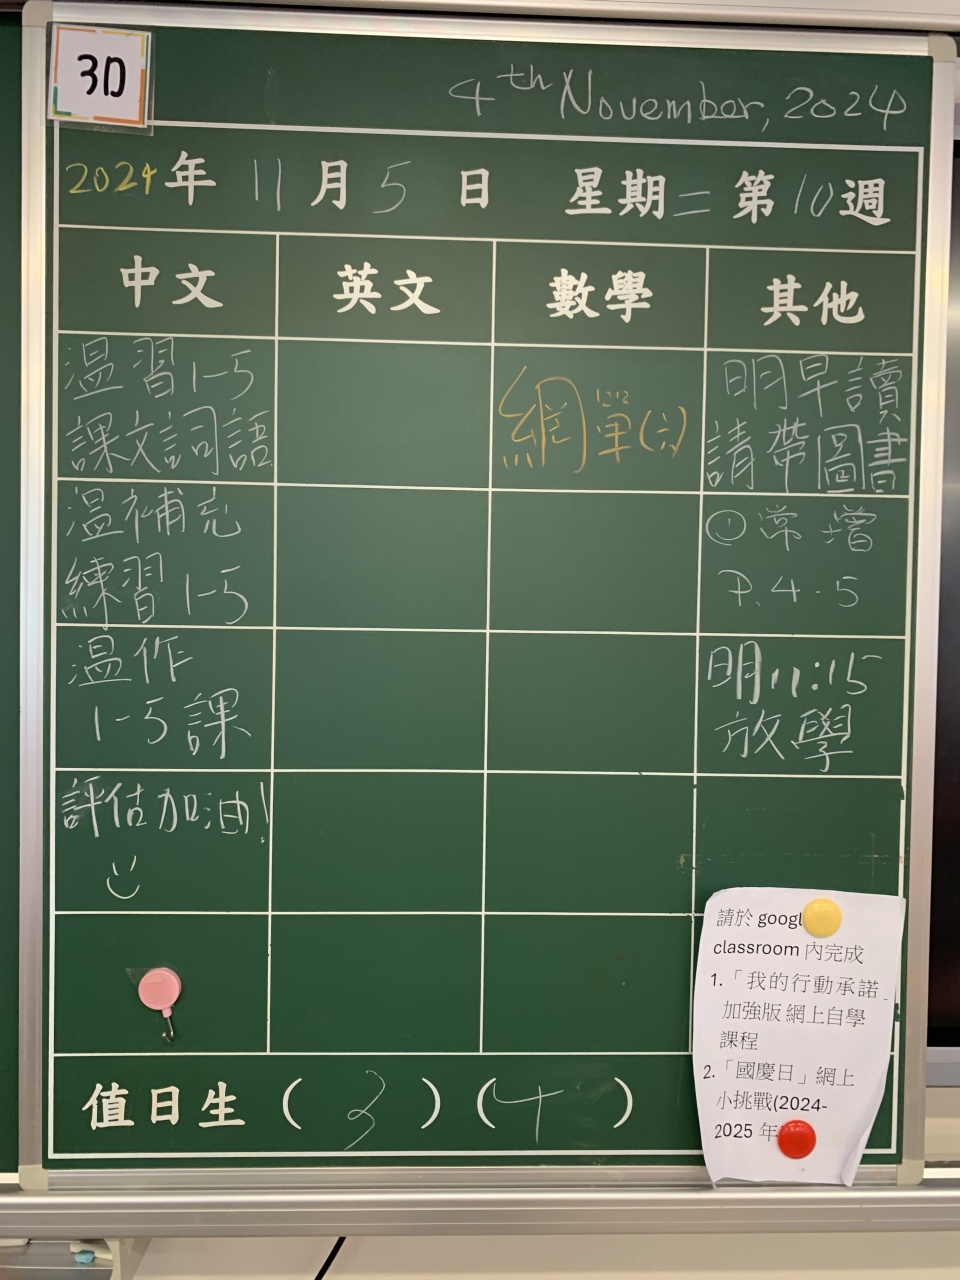 3D
4th November, 2024
2024年 11月5日 星期二 第10週
中文 英文 數學 其他
温習1-5
課文詞語
温補充
練習1-5
温作
1-5課
評估加油!
網單(六)
明早讀
請帶圖書
①常增
P.4-5
明11:15
放學
請於 googl
classroom 內完成
1.「我的行動承諾_
加強版 網上自學
課程
2.「國慶日」網上
小挑戰(2024-
2025 年
值日生(3)(4)